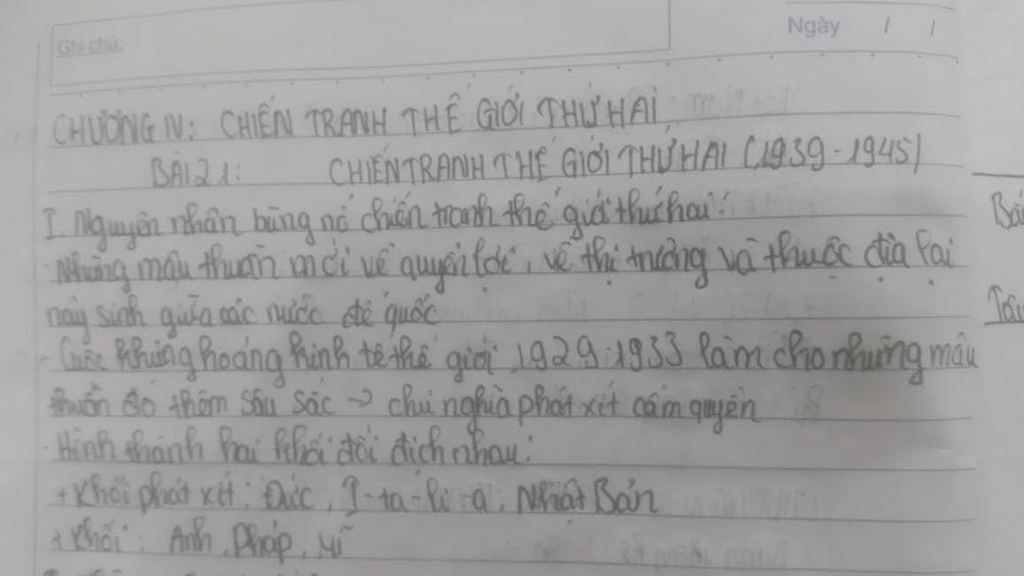 Ghi chú:
Ngày / /
CHƯƠNG IV: CHIẾN TRANH THẾ GIỚI THỨ HAI
BÀI 21: CHIẾN TRANH THẾ GIỚI THỨ HAI (1939-1945)
I. Nguyên nhân bùng nổ chiến tranh thế giới thứ hai:
- Những mâu thuẫn mới về quyền lợi, về thị trường và thuộc địa lại
nảy sinh giữa các nước đế quốc
- Cuộc khủng hoảng kinh tế thế giới 1929-1933 làm cho những mâu
thuẫn đó thêm sâu sắc -> chủ nghĩa phát xít cầm quyền
- Hình thành hai khối đối địch nhau:
+ Khối phát xít: Đức, I-ta-li-a, Nhật Bản
+ Khối: Anh, Pháp, Mĩ